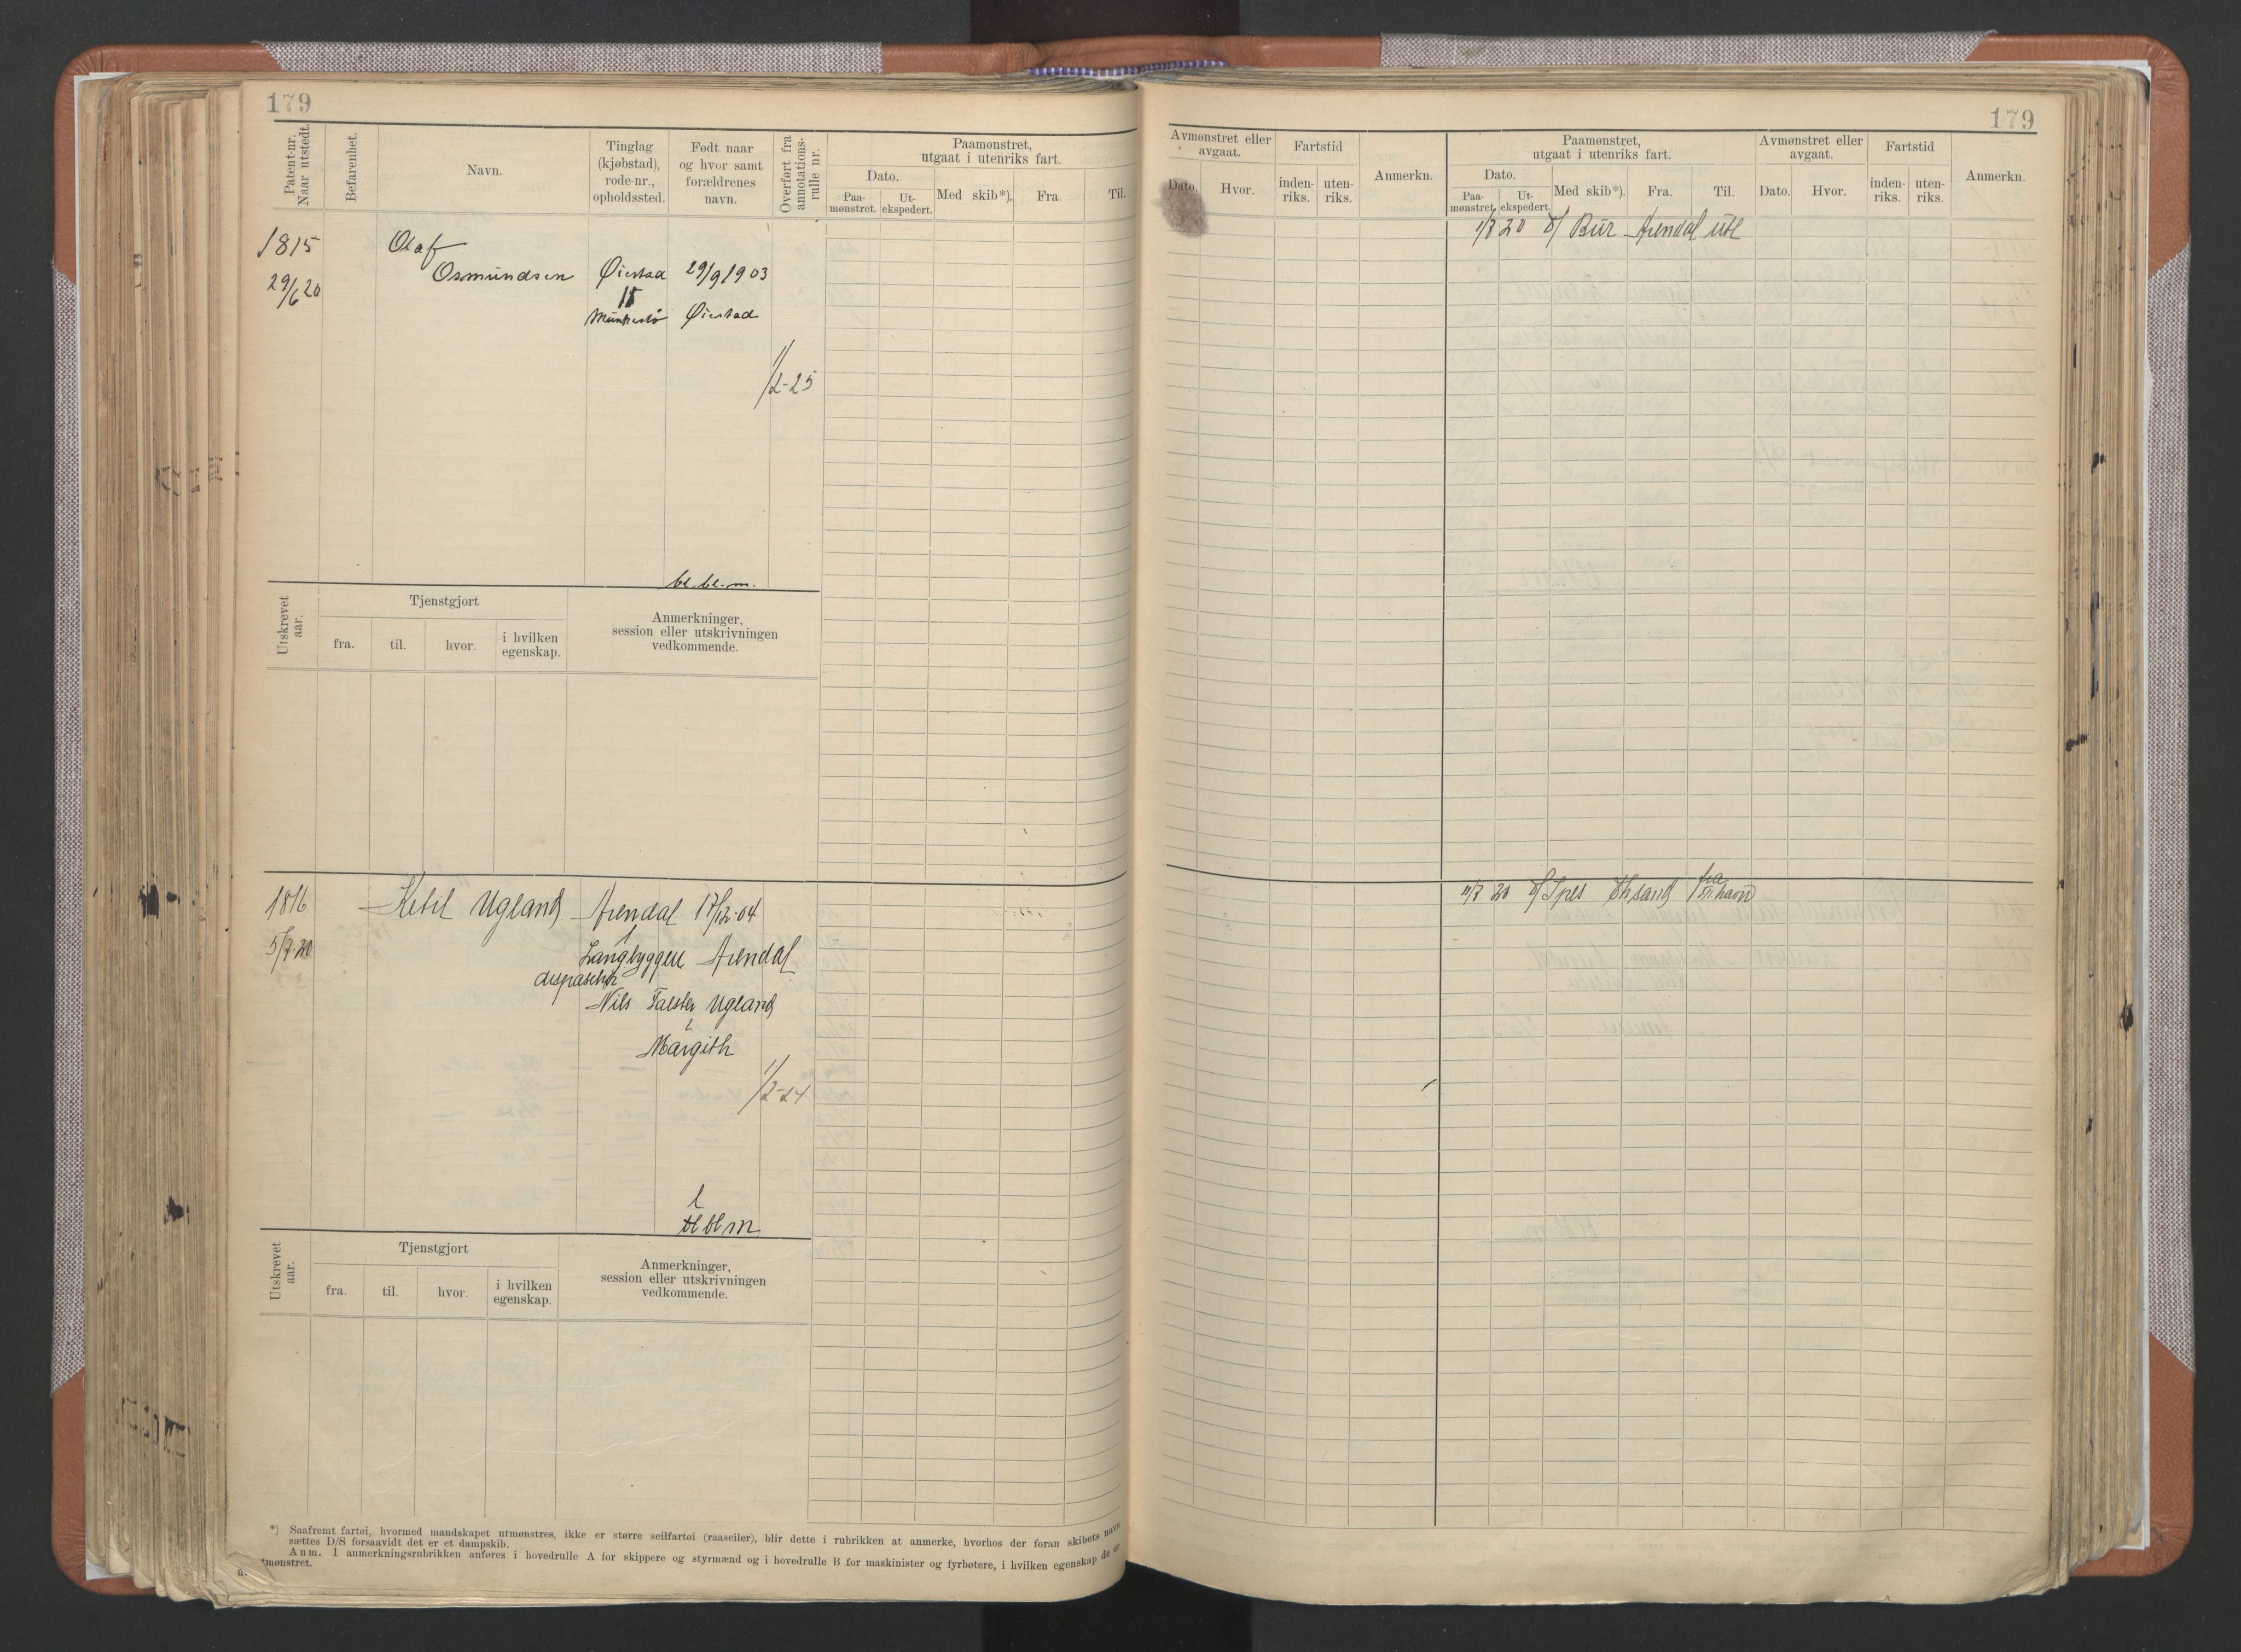 179
Patent-nr.
Naar utstedt.
Befarenhet.
Navn.
Tinglag
(kjøbstad),
rode-nr.,
opholdssted.
Født naar
og hvor samt
forældrenes
navn.
Overført fra
annotations-
rulle nr.
Paamønstret,
utgaat i utenriks fart.
Dato.
Paa-
mønstret.
Ut-
ekspedert.
Med skib*).
Fra.
Til.
1815
29/6 20
Olaf
Osmundsen
Øiestad
15
29/9 1903
Øiestad
1/2-25
bl. bl. m.
Utskrevet
aar.
Tjenstgjort
fra.
til.
hvor.
i hvilken
egenskap.
Anmerkninger,
session eller utskrivningen
vedkommende.
1816
5/7-20
Ketil Ugland
Arendal
1
17/12-04
Langbryggen Arendal
Nils Falster Ugland
Margith
1/2-24
l
bl bl m
Utskrevet
aar.
Tjenstgjort
fra.
til.
hvor.
i hvilken
egenskap.
Anmerkninger,
session eller utskrivningen
vedkommende.
*) Saafremt fartøi, hvormed mandskapet utmønstres, ikke er større seilfartøi (raaseiler), blir dette i rubrikken at anmerke, hvorhos der foran skibets navn
sættes D/S forsaavidt det er et dampskib.
Anm. I anmerkningsrubrikken anføres i hovedrulle A for skippere og styrmænd og i hovedrulle B for maskinister og fyrbøtere, i hvilken egenskap de er
utmønstret.
179
Avmønstret eller
avgaat.
Dato.
Hvor.
Fartstid
inden-
riks.
uten-
riks.
Anmerkn.
Paamønstret,
utgaat i utenriks fart.
Dato.
Paa-
mønstret.
Ut-
ekspedert.
Med skib*).
Fra.
Til.
Avmønstret eller
avgaat.
Dato.
Hvor.
Fartstid
inden-
riks.
uten-
riks.
Anmerkn.
20 Bur Arendal utl
20 Spes Chsand fra